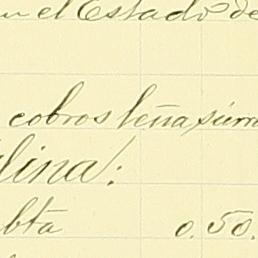 en el Estado de
cobros leña
lina:
bta 0.50.